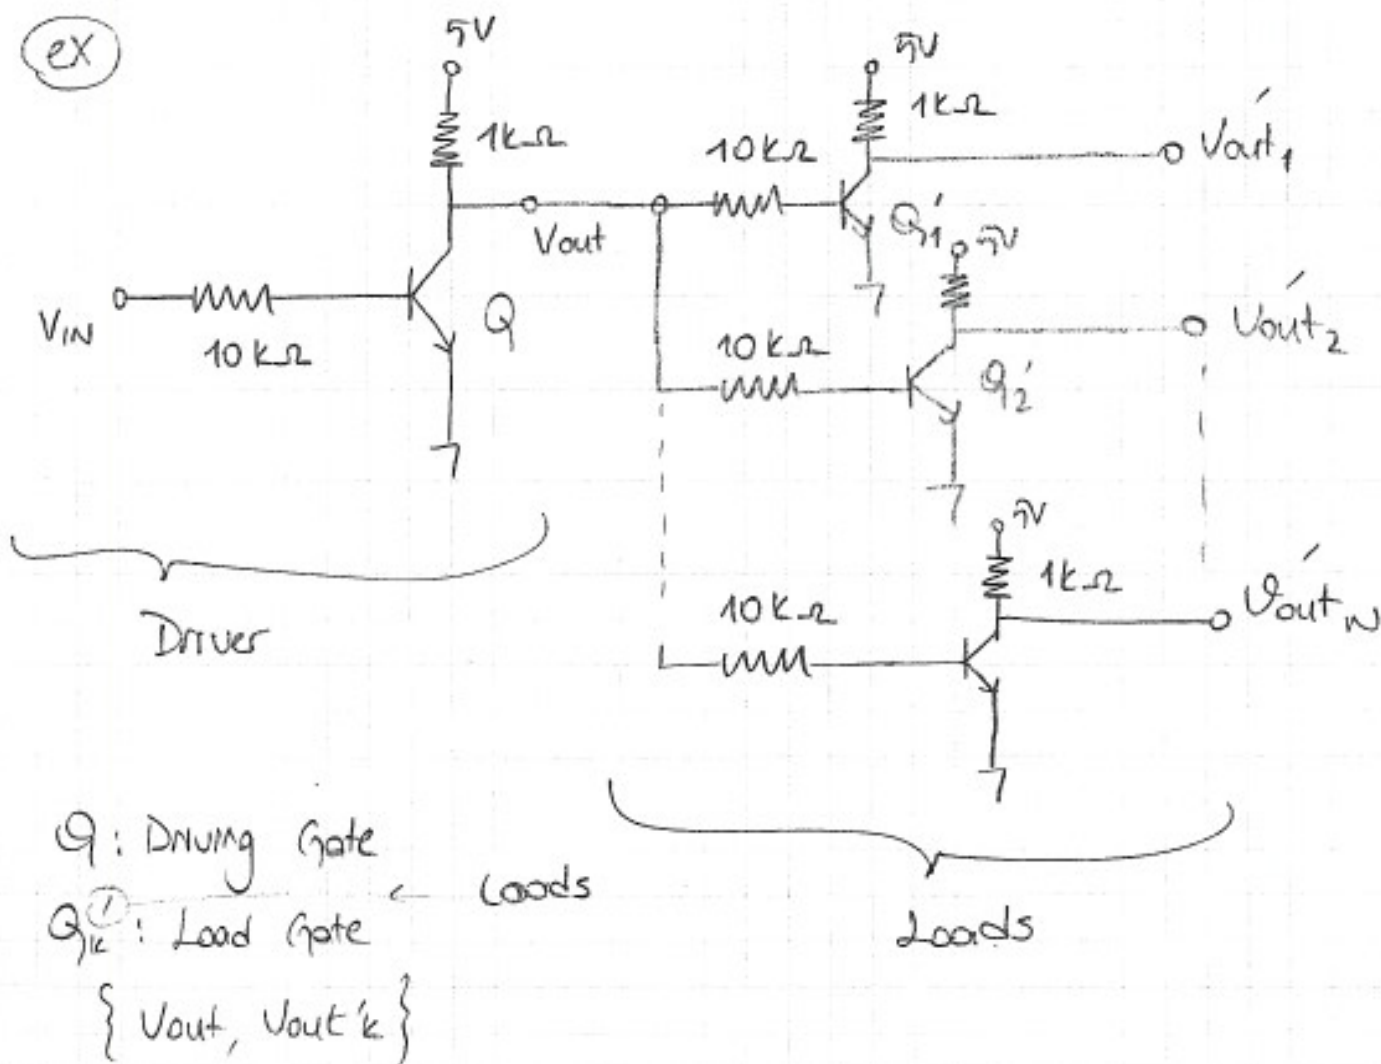 ex
5V
1kΩ
VIN
10kΩ
Q
Vout
10kΩ
5V
1kΩ
Q1'
Vout1'
5V
10kΩ
Q2'
Vout2'
5V
1kΩ
10kΩ
Vout'N
Driver
Loads
Q: Driving Gate
Qk': Load Gate ← Loads
{Vout, Vout'k}